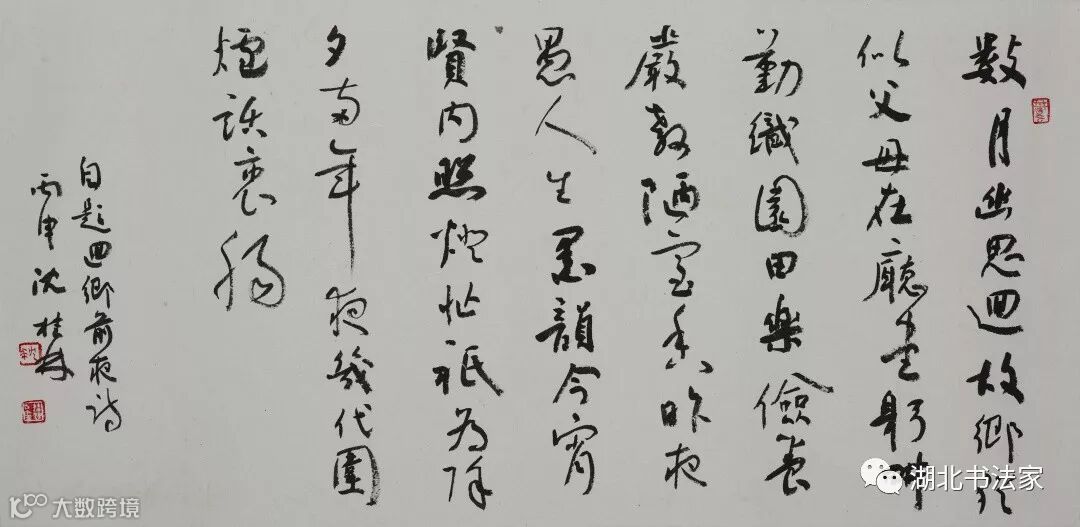 數月幽思迴故鄉
似父母在廳堂躬耕
勤織園田樂儉養
嚴教陋室香昨夜
愚人生墨韻今宵
賢内照燈忙祇為除
夕年夜幾代圍
爐話衷腸
自題迴鄉前夜詩
丙申沈桂林
湖北书法家
大数跨境